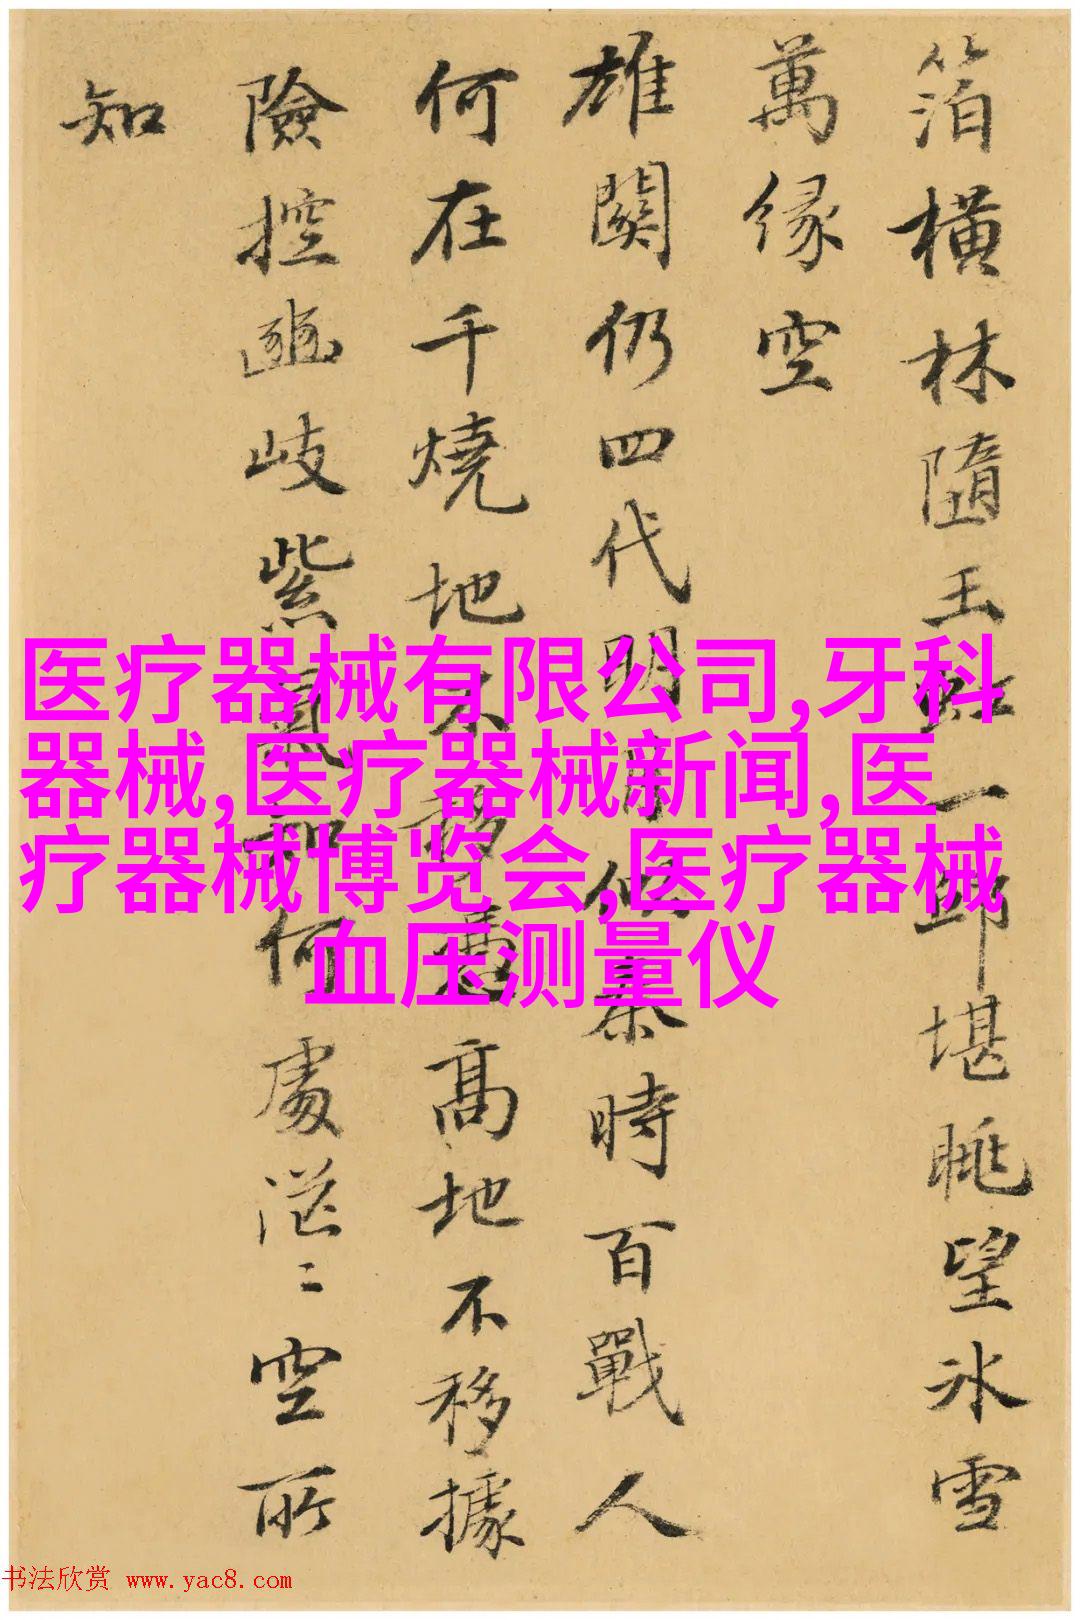 箔橫林隨玉一歸堪眺望冰雪
萬緣空
雄關仍四代明月似秦時百戰人
何在千燒地不移憑高地不移據
險控豳岐紫氣知何處茫〻空所
知
医疗器械有限公司,牙科
器械,医疗器械新闻,医
疗器械博览会,医疗器械
血压测量仪
书法欣赏 www.yac8.com